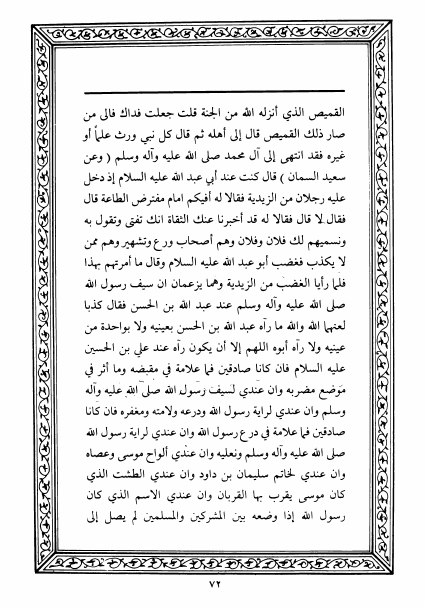 القميص الذي أنزله الله من الجنة قلت جعلت فداك فالى من
صار ذلك القميص قال إلى أهله ثم قال كل نبي ورث علماً أو
غيره فقد انتهى إلى آل محمد صلى الله عليه وآله وسلم ( وعن
سعيد السمان ) قال كنت عند أبي عبد الله عليه السلام إذ دخل
عليه رجلان من الزيدية فقالا له أفيكم امام مفترض الطاعة قال
فقال لا قال فقالا له قد أخبرنا عنك الثقاة انك تفتى وتقول به
ونسميهم لك فلان وفلان وهم أصحاب ورع وتشهير وهم ممن
لا يكذب فغضب أبو عبد الله عليه السلام وقال ما أمرتهم بهذا
فلما رأيا الغضب من الزيدية وهما يزعمان ان سيف رسول الله
صلى الله عليه وآله وسلم عند عبد الله بن الحسن فقال كذبا
لعنهما الله والله ما رآه عبد الله بن الحسن بعينيه ولا بواحدة من
عينيه ولا رآه أبوه اللهم إلا أن يكون رآه عند علي بن الحسين
عليه السلام فان كانا صادقين فما علامة في مقبضه وما أثر في
موضع مضربه وان عندي لسيف رسول الله صلى الله عليه وآله
وسلم وان عندي لراية رسول الله ودرعه ولامته ومغفره فان كانا
صادقين فما علامة في درع رسول الله وان عندي لراية رسول الله
صلى الله عليه وآله وسلم ونعليه وان عندي ألواح موسى وعصاه
وان عندي لخاتم سليمان بن داود وان عندي الطشت الذي
كان موسى يقرب بها القربان وان عندي الاسم الذي كان
رسول الله إذا وضعه بين المشركين والمسلمين لم يصل إلى
٧٢